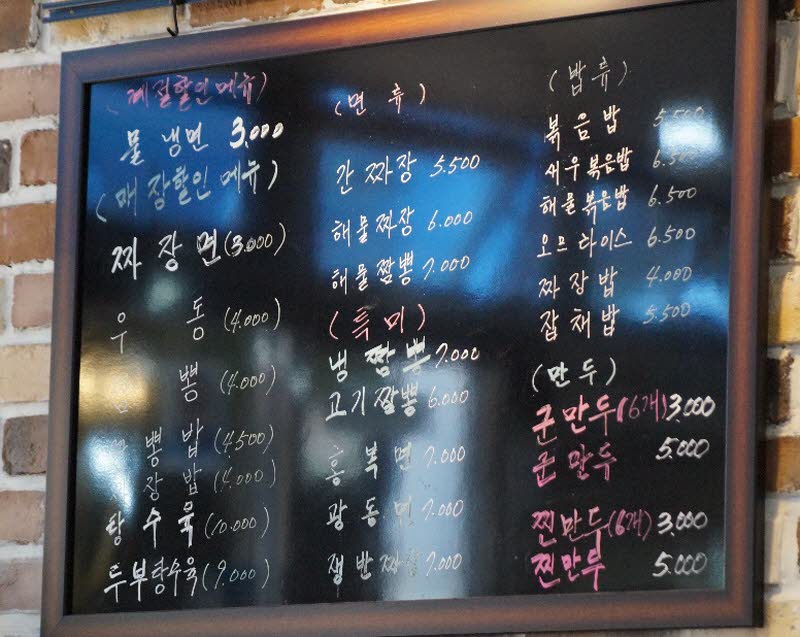 (계절할인메뉴)
물냉면 3,000
(매장할인메뉴)
짜장면 (3,000)
우동 (4,000)
짬뽕 (4,000)
짬뽕밥 (4,500)
짜장밥 (4,000)
탕수육 (10,000)
두부탕수육 (9,000)
(면류)
간짜장 5,500
해물짜장 6,000
해물짬뽕 7,000
(특미)
냉짬뽕 7,000
고기짬뽕 6,000
홍복면 7,000
광동면 7,000
쟁반짜장 7,000
(밥류)
볶음밥 5,500
새우볶음밥 6,500
해물볶음밥 6.500
오므라이스 6.500
짜장밥 4.000
잡채밥 5.500
(만두)
군만두(6개) 3,000
군만두 5.000
찐만두(6개) 3,000
찐만두 5.000